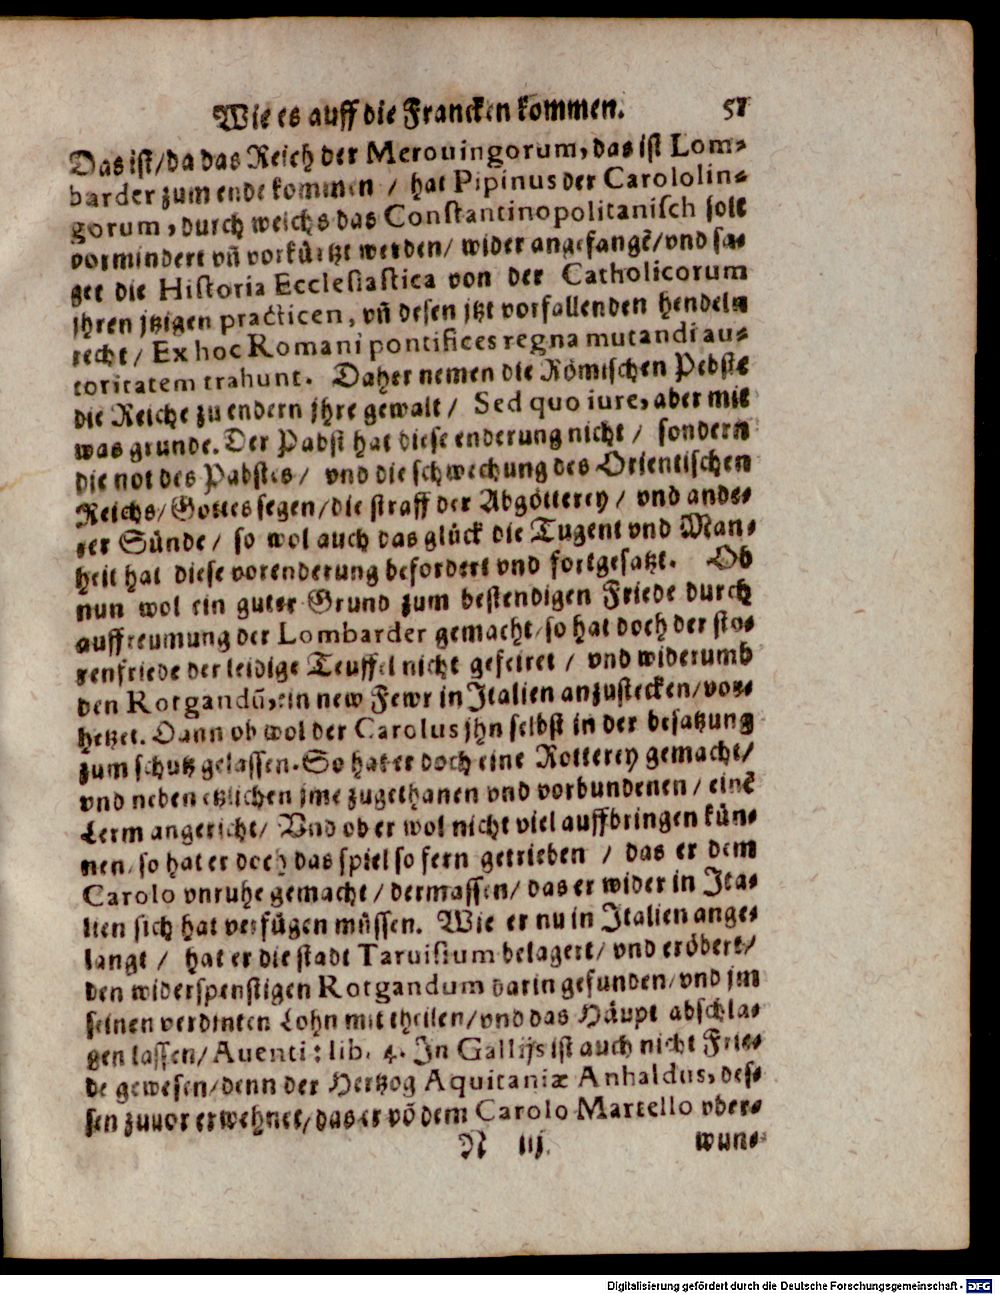 Wie es auff die Francken kommen. 51
Das ist/da das Reich der Merouingorum, das ist Lom-
barder zum ende kommen / hat Pipinus der Carololin-
gorum, durch welchs das Constantinopolitanisch solt
vormindert vñ vorkürtzt werden/ wider angefangẽ/vnd sa-
get die Historia Ecclesiastica von der Catholicorum
jhren jtzigen practicen, vñ desen jtzt vorfallenden hendeln
recht/ Ex hoc Romani pontifices regna mutandi au-
toritatem trahunt. Daher nemen die Römischen Pebste
die Reiche zu endern jhre gewalt/ Sed quo iure, aber mit
was grunde. Der Pabst hat diese enderung nicht / sondern
die not des Pabstes/ vnd die schwechung des Orientischen
Reichs/ Gottes segen/die straff der Abgötterey/ vnd ande-
rer Sünde/ so wol auch das glück die Tugent vnd Man-
heit hat diese vorenderung befordert vnd fortgesatzt. Ob
nun wol ein guter Grund zum bestendigen Friede durch
auffreumung der Lombarder gemacht/so hat doch der sto-
renfriede der leidige Teuffel nicht gefeiret / vnd widerumb
den Rotgandũ, ein new Fewr in Italien anzustecken/vor-
hetzet. Dann ob wol der Carolus jhn selbst in der besatzung
zum schutz gelassen. So hat er doch eine Rotterey gemacht/
vnd neben etzlichen jme zugethanen vnd vorbundenen/ einẽ
Lerm angericht/ Vnd ob er wol nicht viel auffbringen kün-
nen/so hat er doch das spiel so fern getrieben / das er dem
Carolo vnruhe gemacht/dermassen/das er wider in Ita-
lien sich hat verfügen müssen. Wie er nu in Italien ange-
langt / hat er die stadt Taruisium belagert/ vnd eröbert/
den widerspenstigen Rotgandum darin gefunden/vnd jm
seinen verdinten Lohn mit theilen/vnd das Häupt abschla-
gen lassen/Auenti: lib. 4. In Gallijs ist auch nicht Frie-
de gewesen/denn der Hertzog Aquitaniæ Anhaldus, des-
sen zuuor erwehnet/das er võ dem Carolo Martello vber-
N iij. wun-
Digitalisierung gefördert durch die Deutsche Forschungsgemeinschaft - DFG